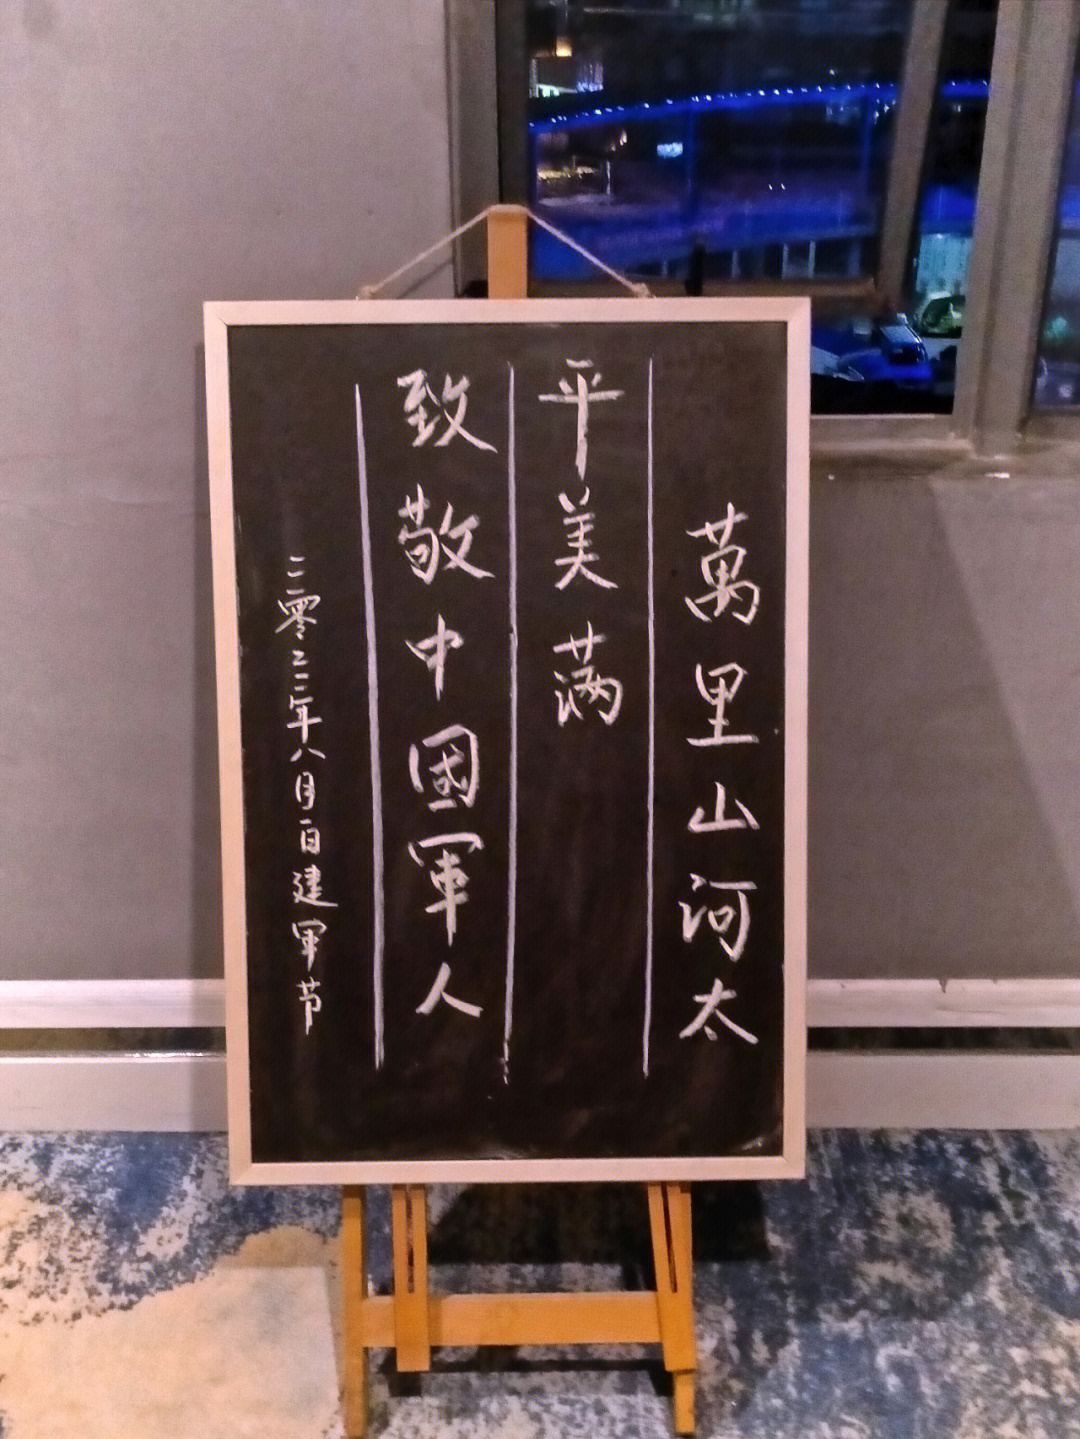 萬里山河太
平美满
致敬中國軍人
二零二二年八月一日建軍节